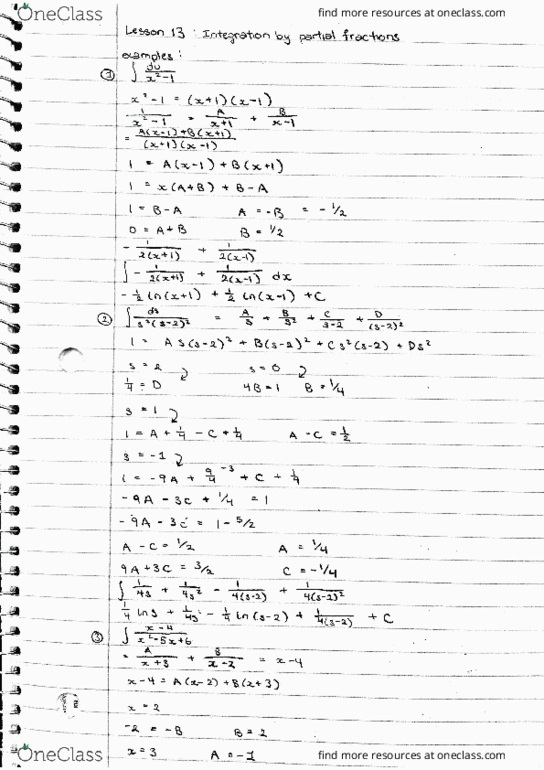 OneClass find more resources at oneclass.com
Lesson 13 : Integration by partial fractions
examples :
① ∫ du/(x²-1)
x² - 1 = (x+1)(x-1)
1/(x²-1) = A/(x+1) + B/(x-1)
= (A(x-1)+B(x+1))/((x+1)(x-1))
1 = A(x-1) + B(x+1)
1 = x(A+B) + B-A
1 = B-A A = -B = -1/2
0 = A+B B = 1/2
- 1/(2(x+1)) + 1/(2(x-1))
∫ - 1/(2(x+1)) + 1/(2(x-1)) dx
- 1/2 ln(x+1) + 1/2 ln(x-1) + C
② ∫ ds/(s²(s-2)²) = A/s + B/s² + C/(s-2) + D/(s-2)²
1 = As(s-2)² + B(s-2)² + Cs²(s-2) + Ds²
s = 2 s = 0
1/4 = D 4B = 1 B = 1/4
s = 1
1 = A + 1/4 - C + 1/4 A - C = 1/2
s = -1
1 = -9A + 9/4 -3 + C + 1/4
-9A - 3C + 1/4 = 1
-9A - 3C = 1 - 5/2
A - C = 1/2 A = 1/4
9A + 3C = 3/2 C = -1/4
∫ 1/4s + 1/4s² - 1/(4(s-2)) + 1/(4(s-2)²)
1/4 ln s + 1/4s - 1/4 ln(s-2) + 1/(4(s-2)) + C
③ ∫ (x-4)/(x²-5x+6)
= A/(x+3) + B/(x-2) = x-4
x-4 = A(x-2) + B(x+3)
x = 2
-2 = -B B = 2
x = 3 A = -1
OneClass find more resources at oneclass.com